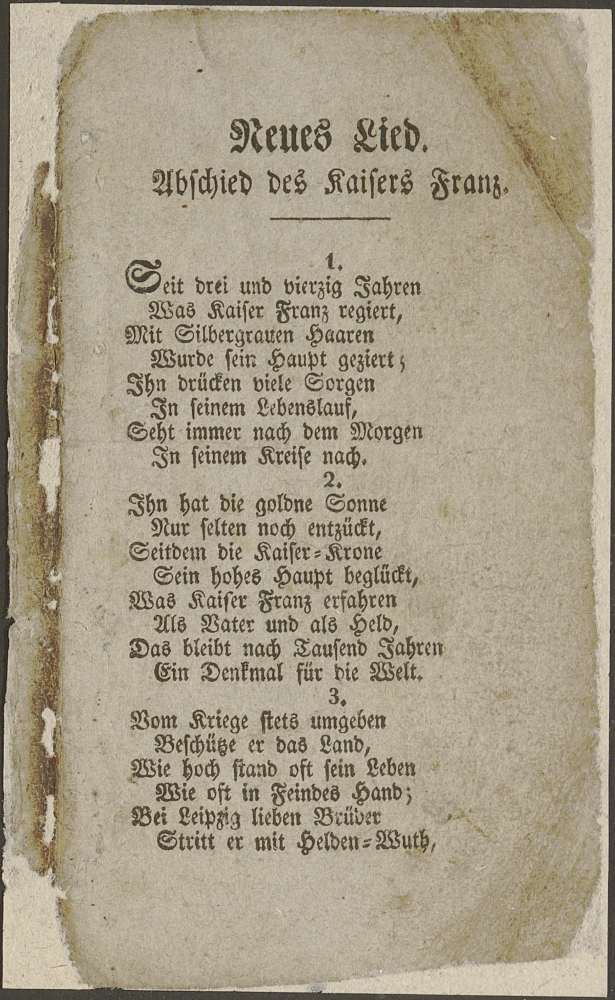 Neues Lied.
Abschied des Kaisers Franz.
1.
Seit drei und vierzig Jahren
Was Kaiser Franz regiert,
Mit Silbergrauen Haaren
Wurde sein Haupt geziert;
Ihn drücken viele Sorgen
In seinem Lebenslauf,
Seht immer nach dem Morgen
In seinem Kreise nach.
2.
Ihn hat die goldne Sonne
Nur selten noch entzückt,
Seitdem die Kaiser-Krone
Sein hohes Haupt beglückt,
Was Kaiser Franz erfahren
Als Vater und als Held,
Das bleibt nach Tausend Jahren
Ein Denkmal für die Welt.
3.
Vom Kriege stets umgeben
Beschütze er das Land,
Wie hoch stand oft sein Leben
Wie oft in Feindes Hand;
Bei Leipzig lieben Brüder
Stritt er mit Helden-Wuth,